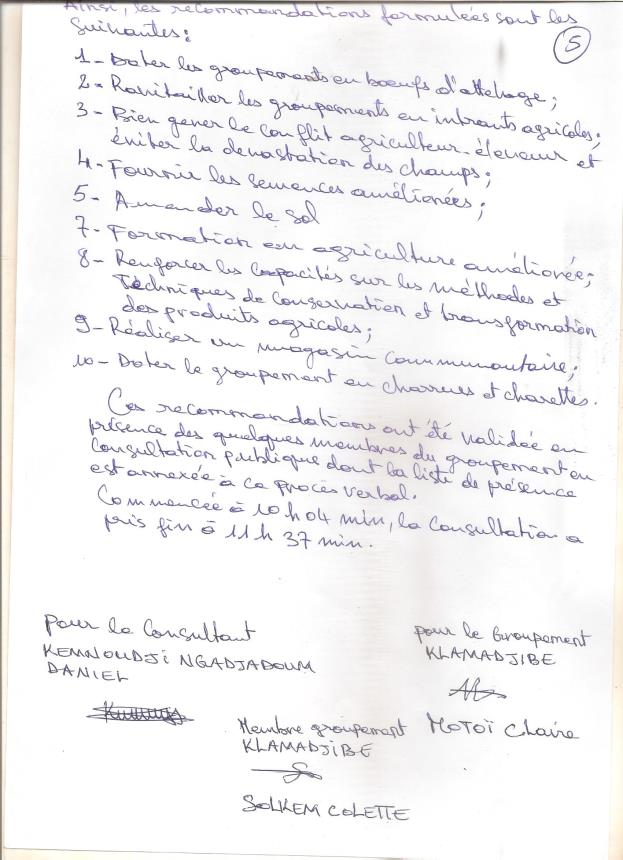 Ainsi, les recommandations formulées sont les
suivantes :
5
1- Doter les groupements en boeufs d'attelage ;
2- Ravitailler les groupements en intrants agricoles ;
3- Bien gerer le conflit agriculteur-éleveur et
éviter la devastation des champs ;
4- Fournir les semences améliorées ;
5- Amander le sol
7- Formation en agriculture améliorée ;
8- Renforcer les capacités sur les méthodes et
Techniques de conservation et transformation
des produits agricoles ;
9- Réaliser un magasin communautaire ;
10- Doter le groupement en charrues et charettes.
Ces recommandations ont été validée en
présence des quelques membres du groupement en
consultation publique dont la liste de présence
est annexée à ce procès verbal.
Commencée à 10 h 04 min, la consultation a
pris fin à 11 h 37 min.
pour le Consultant
KEMNOUDJI NGADJADOUM
DANIEL
pour le Groupement
KLAMADJIBE
MOTOÏ Claire
Membre groupement
KLAMADJIBE
SOLKEM COLETTE